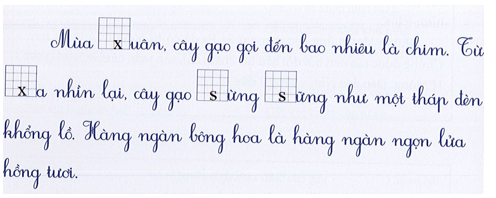 Mùa xuân, cây gạo gọi đến bao nhiêu là chim. Từ
xa nhìn lại, cây gạo sừng sững như một tháp đèn
khổng lồ. Hàng ngàn bông hoa là hàng ngàn ngọn lửa
hồng tươi.